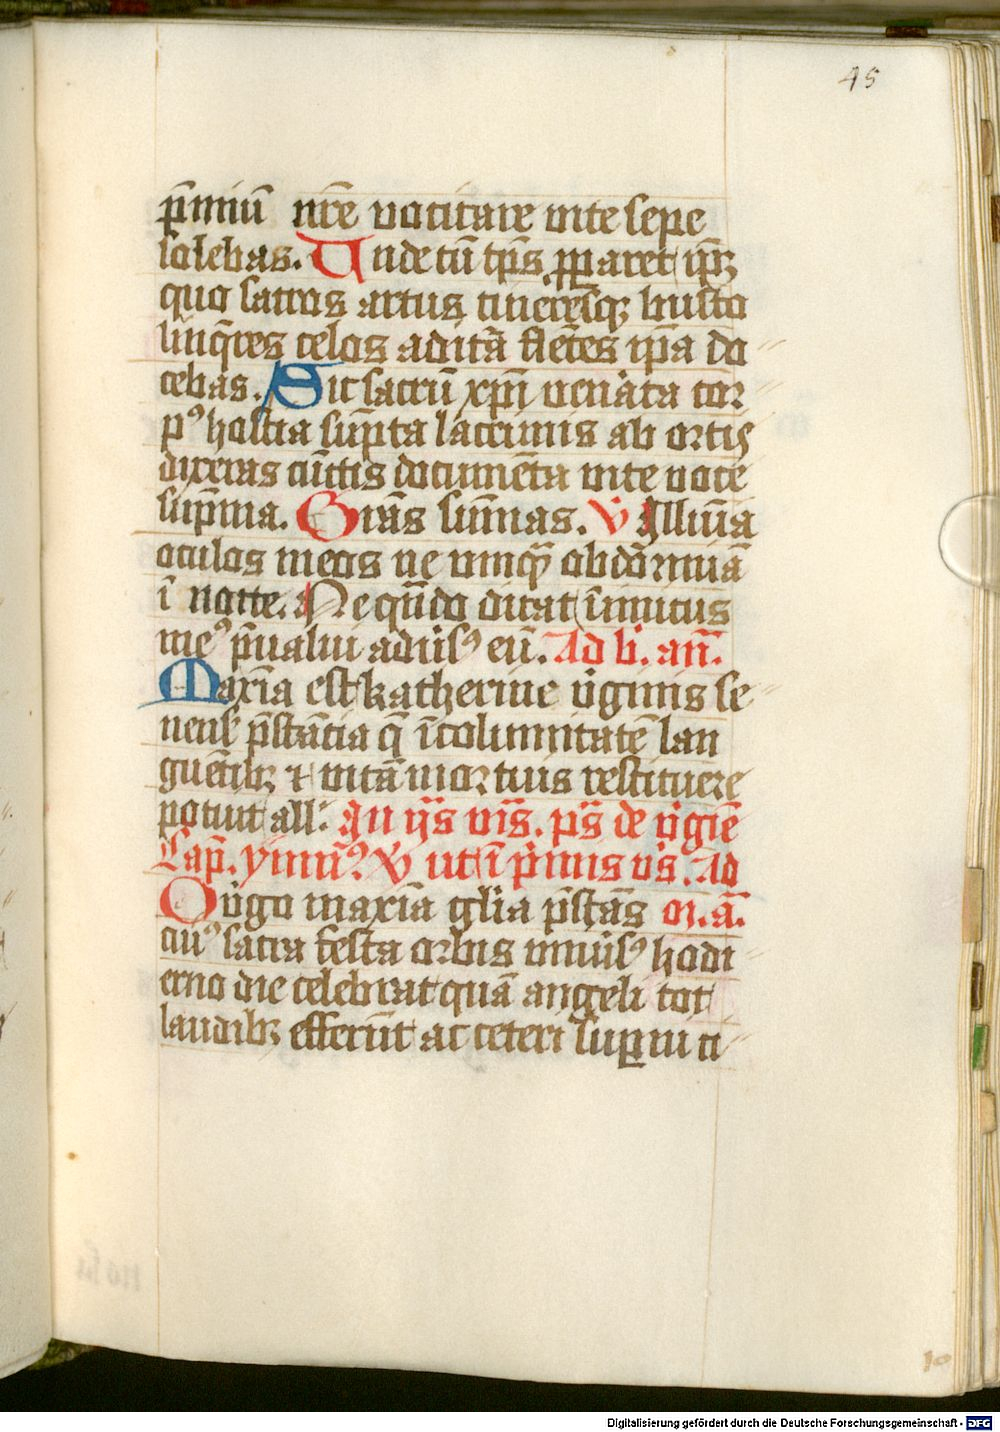 45
p̄miū nr̄e vocitare vite sepe
solebas. Unde cū tp̄s ꝓparet ip̄ꝫ
quo sacros artus cineresqꝫ busto
linq̄res celos adirā flētes ip̄a do
cebas. Sic sacrū xp̄i venata cor
pꝰ hostia sūpta lacrimis ab ortis
dixeras cūctis documēta vite voce
sup̄ma. Grās sūmas. V Illūīa
oculos meos ne vmqꝫ obdormiā
ī nocte. Ne qn̄do dicat īimicus
meꝰ p̄ualui adūsꝰ eū. Ad b. an̄.
Maxīa est katherine v̄ginis se
nēsꝭ p̄stācia q̄ īcolumitatē lan
guētibꝫ ⁊ vitā mortuis restituere
potuit all̄. In ijs vr̄s. ps̄ de v̄gīe
Cap̄. ymnꝰ. V ut ī p̄mis vs̄. Ad
O v̄go maxīa gl̄ia p̄stās m. ā.
cuiꝰ sacra festa orbis vniūsꝰ hodi
erno die celebrat quā angeli tot
laudibꝫ efferūt ac ceteri suꝑni ci
10
Digitalisierung gefördert durch die Deutsche Forschungsgemeinschaft - DFG